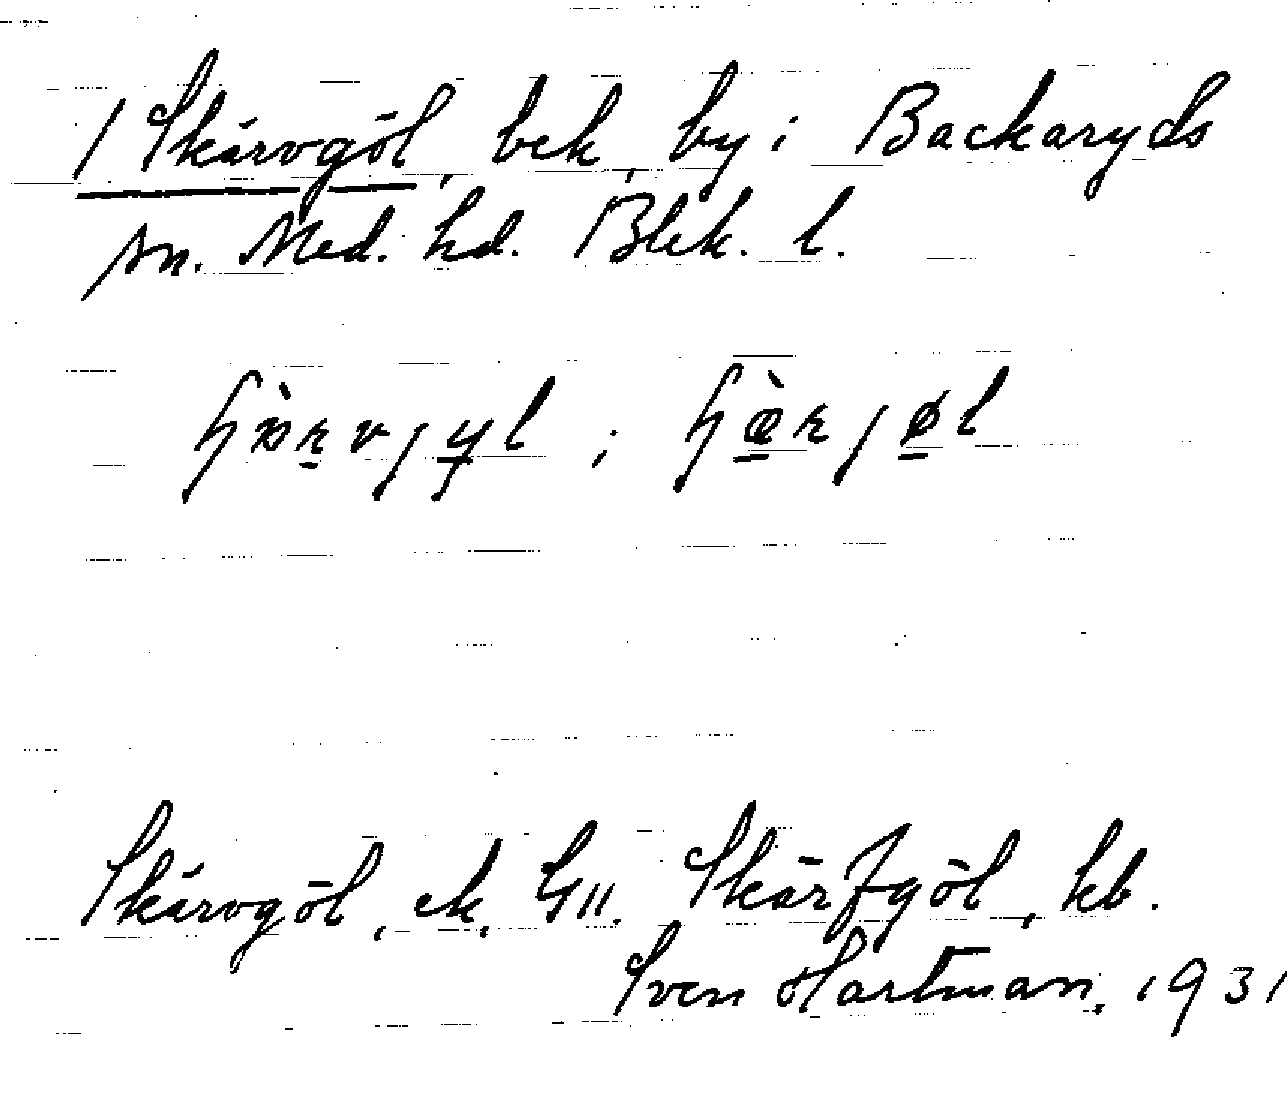 / Skärvgöl, bek, by i Backaryds
sn. Med. hd. Blek. l.
Skärvgöl, ek, Skärfgöl, kb.
Sven Hartman, 1931